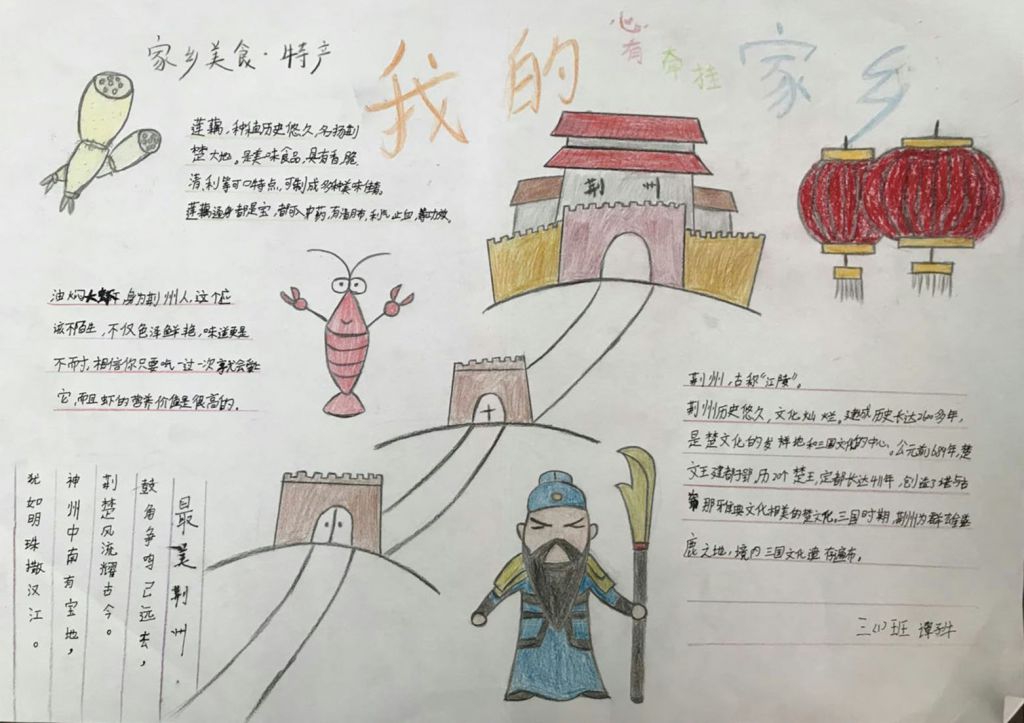 我的家乡
心有牵挂
家乡美食·特产
莲藕,种植历史悠久,名扬荆
楚大地。是美味食品,具有香,脆
清利等可口特点,可制成多种美味佳肴。
莲藕通身都是宝,都可入中药,有清肺,利气,止血,等功效。
油焖大虾,身为荆州人,这个应
该不陌生,不仅色泽鲜艳,味道更是
不而寸,相信你只要吃一过一次就会爱
它,而且虾的营养价值是很高的。
荆州
荆州,古称“江陵”。
荆州历史悠久,文化灿烂。建成历史长达2600多年,
是楚文化的发祥地和三国文化的中心。公元前689年,楚
文王建都于郢,历20个楚王,定都长达411年,创造了堪与古
希那牙雅典文化相美的楚文化。三国时期,荆州为群雄逐
鹿之地,境内三国文化遗存遍布。
三(1)班 谭
最美荆州
鼓角争鸣已远去,
荆楚风流耀古今。
神州中南有宝地,
犹如明珠撒汉江。